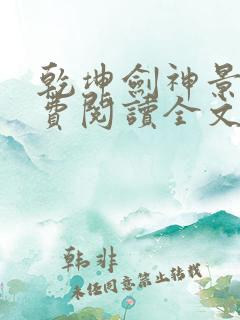 乾坤劍神景
費閱讀全文
韩非
未经同意禁止转载